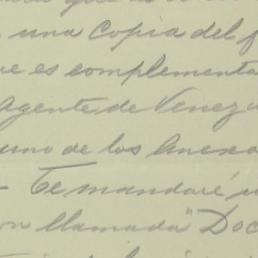 una Copia del
es complementa
Agente de Venezu
uno de los Anexo
- Te mandaré u
llamada "Doc